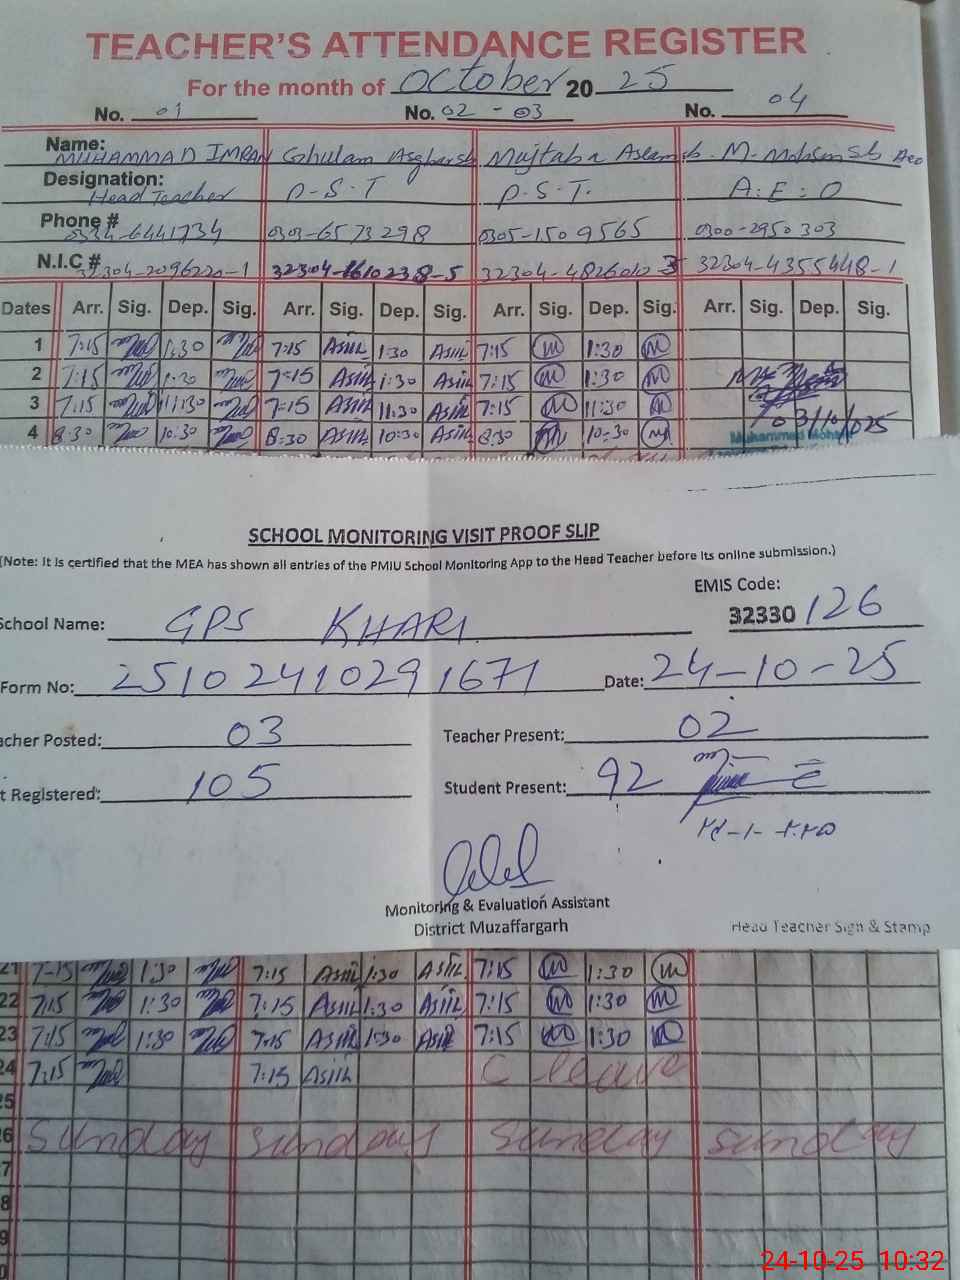 TEACHER'S ATTENDANCE REGISTER
For the month of October 20 25
No. 01 No. 02 - 03 No. 04
Name: MUHAMMAD IMRAN Ghulam Asghar sb Mujtaba Aslam sb. M. Mohsin Sb Aeo
Designation: Head Teacher P-S-T P.S.T. A.E.O
Phone # 0334-6441734 0303-6573298 0305-1509565 0300-2950303
N.I.C # 32304-2096220-1 32304-1610238-5 32304-4826010-3 32304-4355448-1
Dates Arr. Sig. Dep. Sig. Arr. Sig. Dep. Sig. Arr. Sig. Dep. Sig. Arr. Sig. Dep. Sig.
1 7:15 1:30 7:15 1:30 7:15 1:30
2 7:15 1:30 7:15 1:30 7:15 1:30
3 7:15 11:30 7:15 11:30 7:15 11:30
4 8:30 10:30 8:30 10:30 8:30 10:30
Muhammad
SCHOOL MONITORING VISIT PROOF SLIP
(Note: It is certified that the MEA has shown all entries of the PMIU School Monitoring App to the Head Teacher before its online submission.)
EMIS Code:
School Name: GPS KHARI 32330 126
Form No: 2510241029 1671 Date: 24-10-25
acher Posted: 03 Teacher Present: 02
t Registered: 105 Student Present: 92
Monitoring & Evaluation Assistant
District Muzaffargarh Head Teacher Sign & Stamp
21 7-15 1:30 7:15 1:30 7:15 1:30
22 7:15 1:30 7:15 1:30 7:15 1:30
23 7:15 1:30 7:15 1:30 7:15 1:30
24 7:15 7:15 C leave
25
26 Sunday Sunday Sunday Sunday
7
8
9
0
24-10-25 10:32